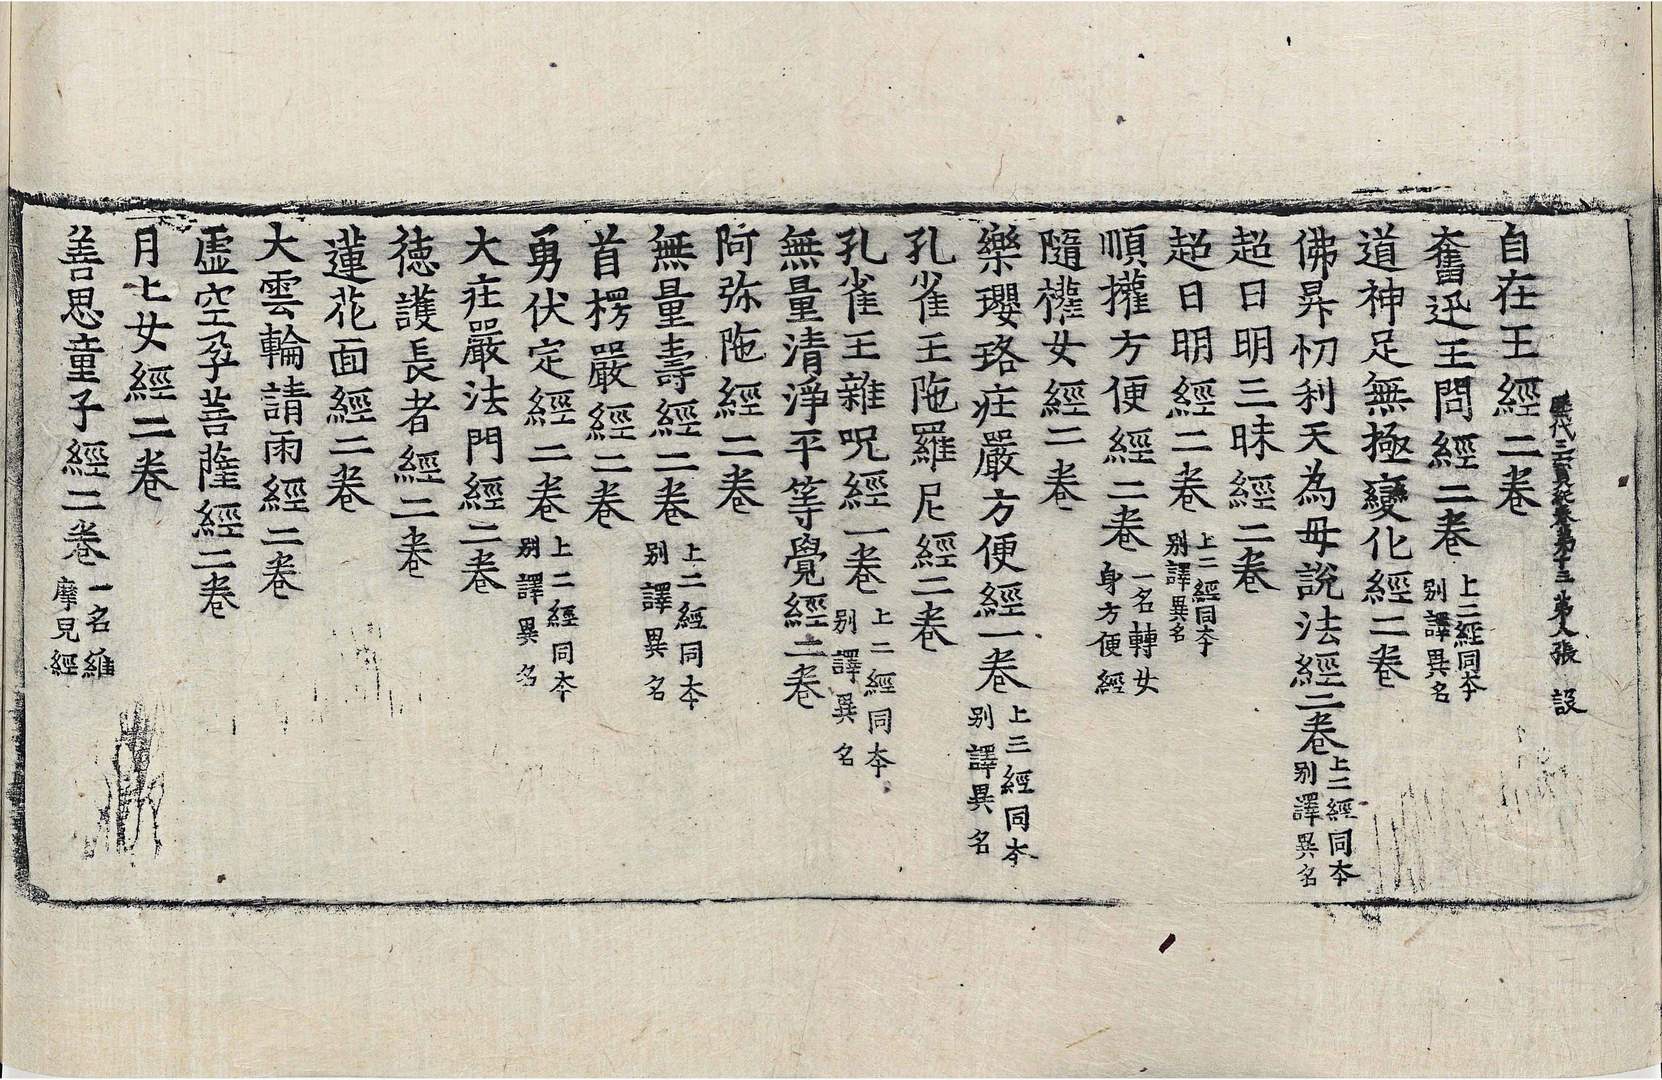 歷代三寶紀卷第十三 第八張 設
自在王經二卷
奮迅王問經二卷 上二經同本別譯異名
道神足無極變化經二卷
佛昇忉利天為母說法經三卷 上二經同本別譯異名
超日明三昧經二卷
超日明經二卷 上二經同本別譯異名
順攉方便經二卷 一名轉女身方便經
隨權女經二卷
樂瓔珞庄嚴方便經一卷 上三經同本別譯異名
孔雀王陁羅尼經二卷
孔雀王雜呪經一卷 上二經同本別譯異名
無量清淨平等覺經二卷
阿弥陁經二卷
無量壽經二卷 上二經同本別譯異名
首楞嚴經二卷
勇伏定經二卷 上二經同本別譯異名
大庄嚴法門經二卷
徳護長者經二卷
蓮花面經二卷
大雲輪請雨經二卷
虛空孕菩薩經二卷
月上女經二卷
善思童子經二卷 一名維摩兒經